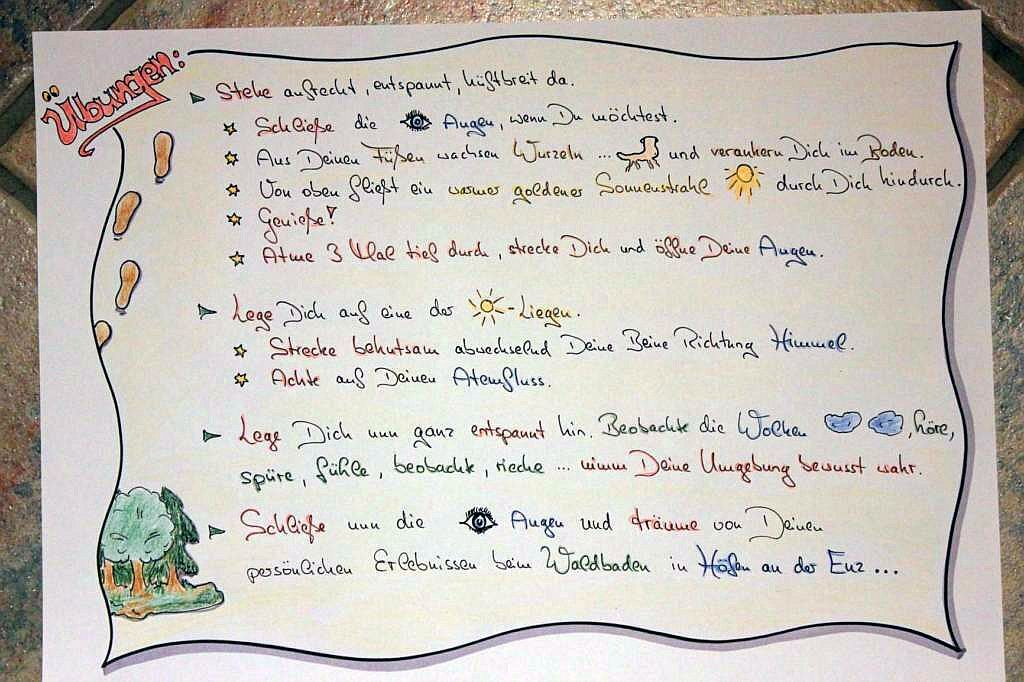 Übungen:
Stehe aufrecht, entspannt, hüftbreit da.
Schließe die Augen, wenn Du möchtest.
Aus Deinen Füßen wachsen Wurzeln ... und verankern Dich im Boden.
Von oben fließt ein warmer goldener Sonnenstrahl durch Dich hindurch.
Genieße!
Atme 3 Mal tief durch, strecke Dich und öffne Deine Augen.
Lege Dich auf eine der -Liegen.
Strecke behutsam abwechselnd Deine Beine Richtung Himmel.
Achte auf Deinen Atemfluss.
Lege Dich nun ganz entspannt hin. Beobachte die Wolken , höre,
spüre, fühle, beobachte, rieche ... nimm Deine Umgebung bewusst wahr.
Schließe nun die Augen und träume von Deinen
persönlichen Erlebnissen beim Waldbaden in Höfen an der Enz ...